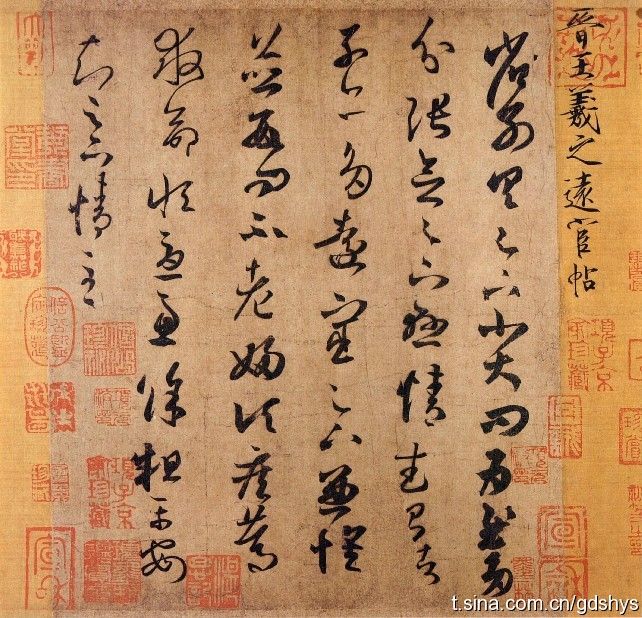 晉王羲之遠宦帖
省別具足下小大問為慰多
分張念足下懸情武昌諸
子亦多遠宦足下兼懷
並數問不老婦頃疾篤
救命恒憂慮餘粗平安
知足下情至
項子京家珍藏
t.sina.com.cn/gdshys